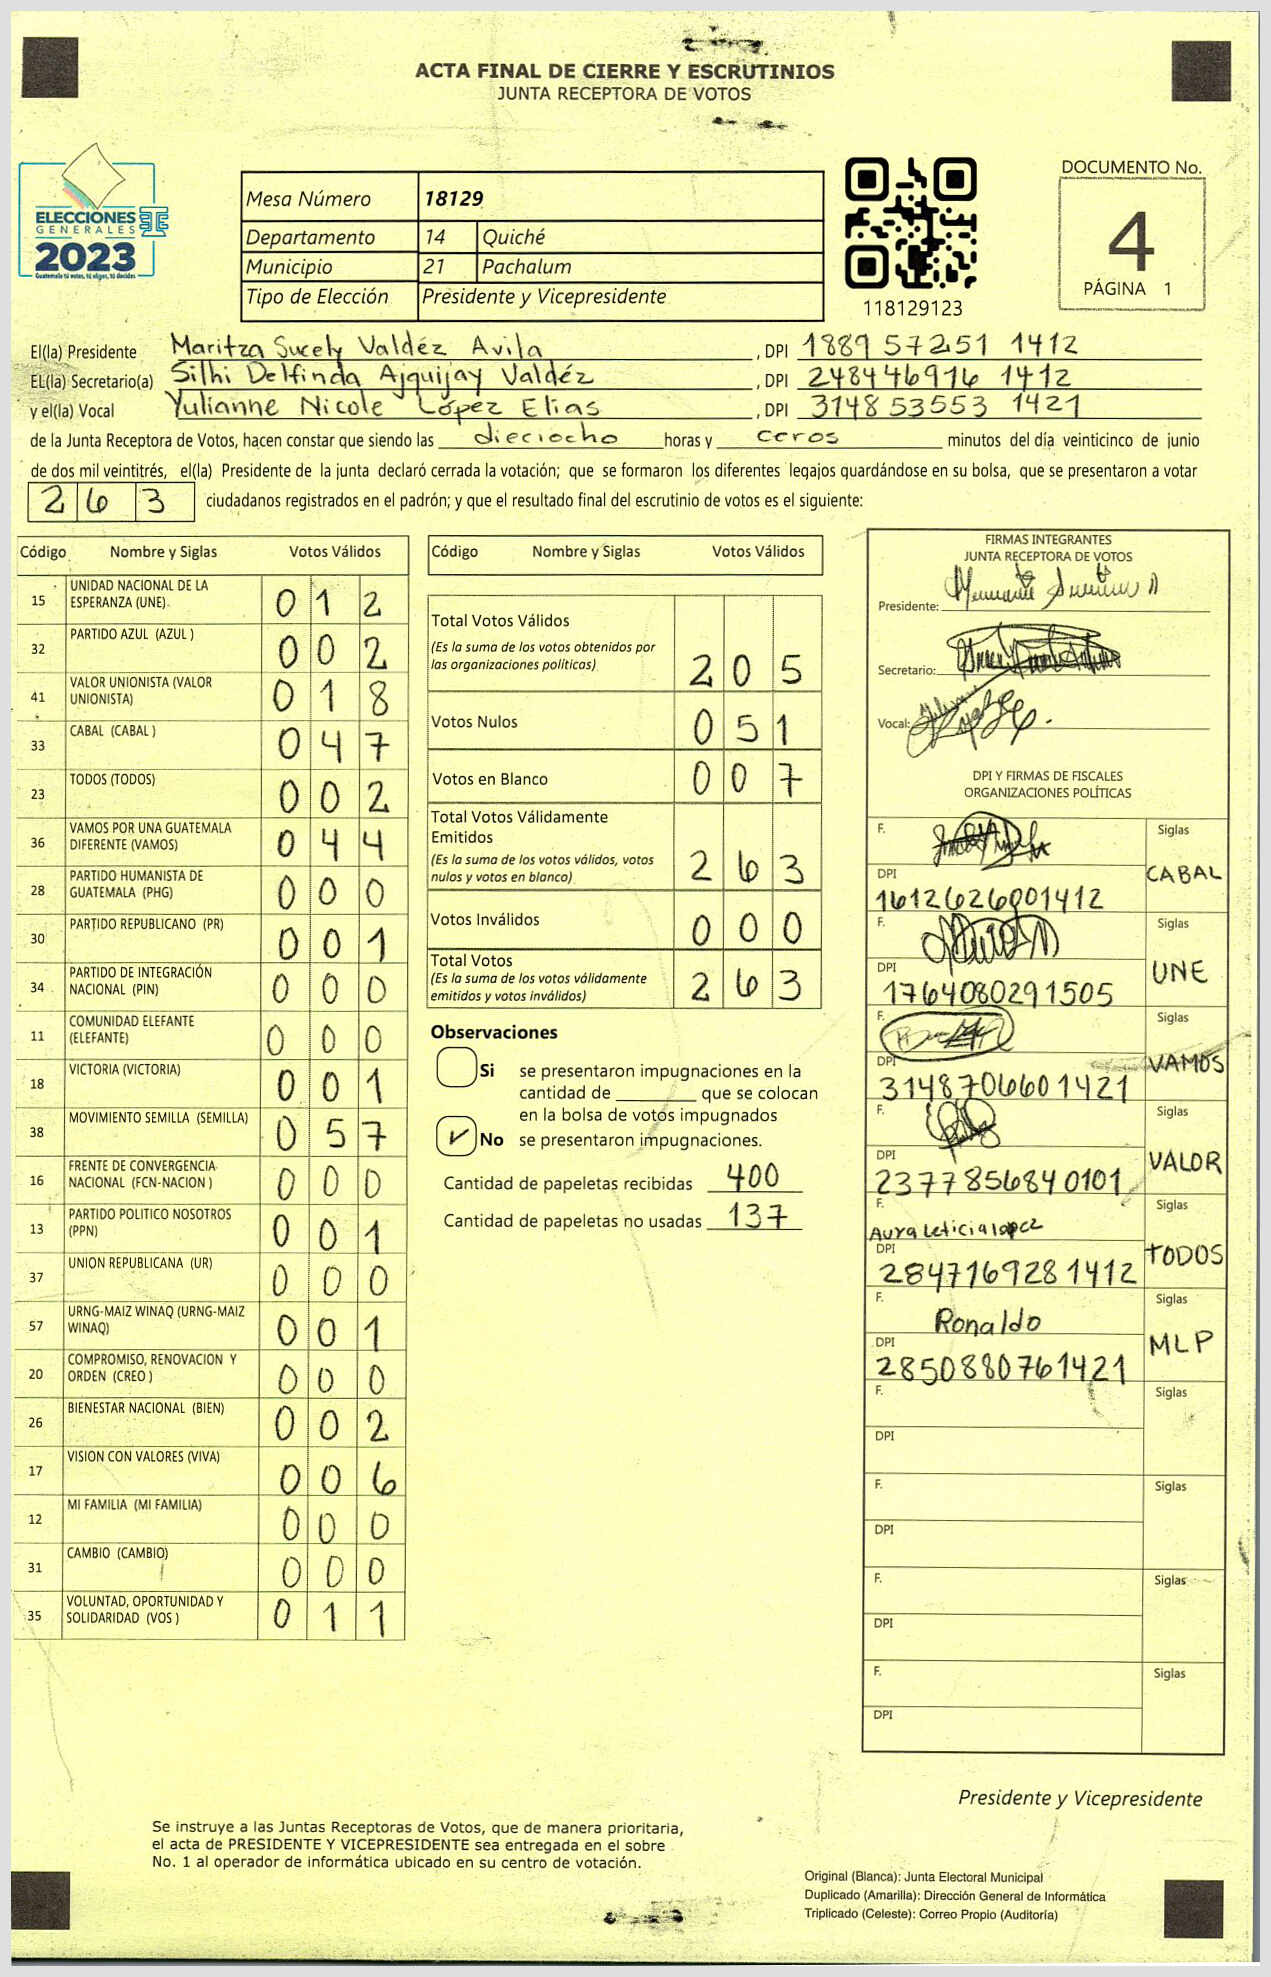 ACTA FINAL DE CIERRE Y ESCRUTINIOS
JUNTA RECEPTORA DE VOTOS
ELECCIONES
GENERALES
2023
Guatemala tú votas, tú eliges, tú decides
Mesa Número 18129
Departamento 14 Quiché
Municipio 21 Pachalum
Tipo de Elección Presidente y Vicepresidente
118129123
DOCUMENTO No.
4
PÁGINA 1
El(la) Presidente Maritza Sucely Valdéz Avila, DPI 1889 57251 1412
EL(la) Secretario(a) Silhi Delfinda Ajquijay Valdéz, DPI 248446916 1412
y el(la) Vocal Yulianne Nicole López Elias, DPI 3148 53553 1421
de la Junta Receptora de Votos, hacen constar que siendo las dieciocho horas y ceros minutos del día veinticinco de junio
de dos mil veintitrés, el(la) Presidente de la junta declaró cerrada la votación; que se formaron los diferentes legajos guardándose en su bolsa, que se presentaron a votar
263 ciudadanos registrados en el padrón; y que el resultado final del escrutinio de votos es el siguiente:
Código Nombre y Siglas Votos Válidos
15 UNIDAD NACIONAL DE LA ESPERANZA (UNE) 012
32 PARTIDO AZUL (AZUL ) 002
41 VALOR UNIONISTA (VALOR UNIONISTA) 018
33 CABAL (CABAL ) 047
23 TODOS (TODOS) 002
36 VAMOS POR UNA GUATEMALA DIFERENTE (VAMOS) 044
28 PARTIDO HUMANISTA DE GUATEMALA (PHG) 000
30 PARTIDO REPUBLICANO (PR) 001
34 PARTIDO DE INTEGRACIÓN NACIONAL (PIN) 000
11 COMUNIDAD ELEFANTE (ELEFANTE) 000
18 VICTORIA (VICTORIA) 001
38 MOVIMIENTO SEMILLA (SEMILLA) 057
16 FRENTE DE CONVERGENCIA NACIONAL (FCN-NACION ) 000
13 PARTIDO POLITICO NOSOTROS (PPN) 001
37 UNION REPUBLICANA (UR) 000
57 URNG-MAIZ WINAQ (URNG-MAIZ WINAQ) 001
20 COMPROMISO, RENOVACION Y ORDEN (CREO ) 000
26 BIENESTAR NACIONAL (BIEN) 002
17 VISION CON VALORES (VIVA) 006
12 MI FAMILIA (MI FAMILIA) 000
31 CAMBIO (CAMBIO) 000
35 VOLUNTAD, OPORTUNIDAD Y SOLIDARIDAD (VOS ) 011
Código Nombre y Siglas Votos Válidos
Total Votos Válidos 205
(Es la suma de los votos obtenidos por
las organizaciones políticas)
Votos Nulos 051
Votos en Blanco 007
Total Votos Válidamente
Emitidos 263
(Es la suma de los votos válidos, votos
nulos y votos en blanco)
Votos Inválidos 000
Total Votos 263
(Es la suma de los votos válidamente
emitidos y votos inválidos)
Observaciones
Si se presentaron impugnaciones en la
cantidad de ________ que se colocan
en la bolsa de votos impugnados
✓ No se presentaron impugnaciones.
Cantidad de papeletas recibidas 400
Cantidad de papeletas no usadas 137
FIRMAS INTEGRANTES
JUNTA RECEPTORA DE VOTOS
Presidente:
Secretario:
Vocal:
DPI Y FIRMAS DE FISCALES
ORGANIZACIONES POLÍTICAS
F. Siglas CABAL
DPI 1612626001412
F. Siglas UNE
DPI 1764080291505
F. Siglas VAMOS
DPI 3148706601421
F. Siglas VALOR
DPI 2377856840101
F. Aura Leticia lopez Siglas TODOS
DPI 2847169281412
F. Ronaldo Siglas MLP
DPI 2850880761421
F. Siglas
DPI
F. Siglas
DPI
F. Siglas
DPI
F. Siglas
DPI
Presidente y Vicepresidente
Se instruye a las Juntas Receptoras de Votos, que de manera prioritaria,
el acta de PRESIDENTE Y VICEPRESIDENTE sea entregada en el sobre
No. 1 al operador de informática ubicado en su centro de votación.
Original (Blanca): Junta Electoral Municipal
Duplicado (Amarilla): Dirección General de Informática
Triplicado (Celeste): Correo Propio (Auditoría)